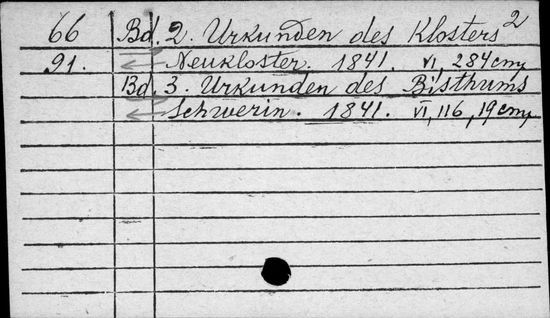 66 Bd. 2. Urkunden des Klosters 2
91. Neukloster. 1841. VI, 284 cmy
Bd. 3. Urkunden des Bisthums
Schwerin. 1841. VI, 116, 19 cmy